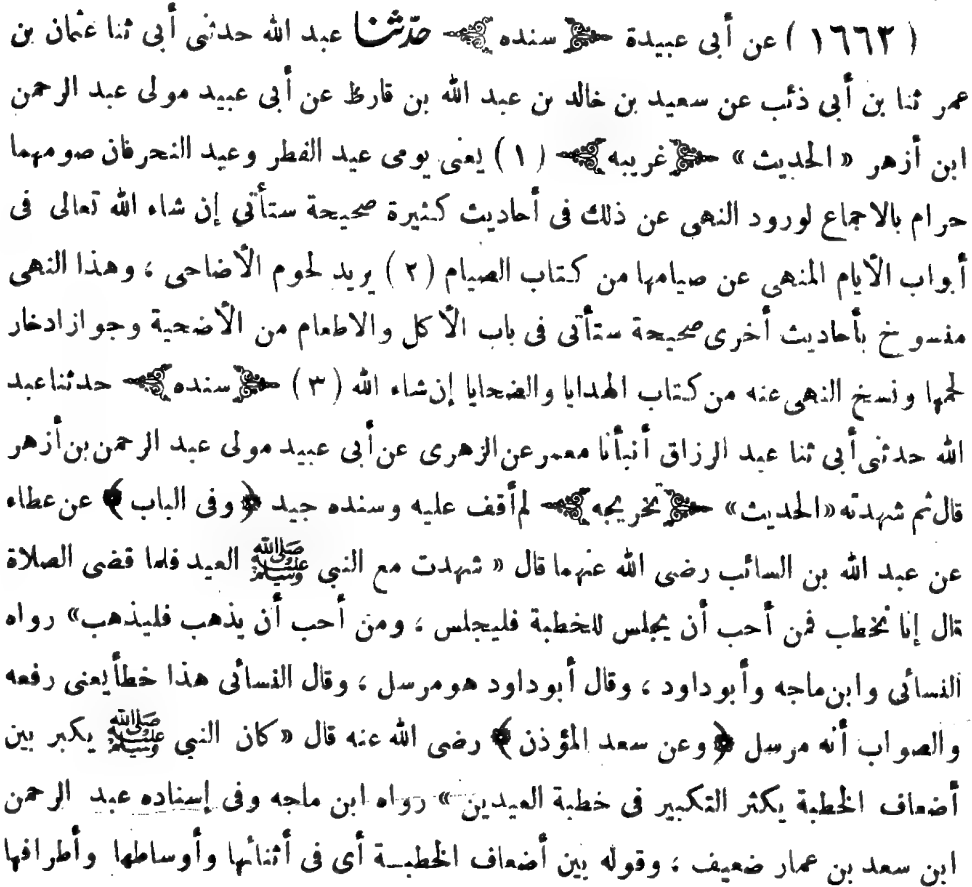 ( ١٦٦٣ ) عن أبى عبيدة ﴿ سنده ﴾ حدّثنا عبد الله حدثنى أبى ثنا عثمان بن
عمر ثنا بن أبى ذئب عن سعيد بن خالد بن عبد الله بن قارظ عن أبى عبيد مولى عبد الرحمن
ابن أزهر « الحديث » ﴿ غريبه ﴾ ( ١ ) يعنى يومى عيد الفطر وعيد النحر فان صومهما
حرام بالاجماع لورود النهى عن ذلك فى أحاديث كثيرة صحيحة ستأتي إن شاء الله تعالى فى
أبواب الأيام المنهى عن صيامها من كتاب الصيام ( ٢ ) يريد لحوم الأضاحى ، وهذا النهى
منسوخ بأحاديث أخرى صحيحة ستأتى فى باب الأكل والاطعام من الأضحية وجواز ادخار
لحمها ونسخ النهى عنه من كتاب الهدايا والضحايا إن شاء الله ( ٣ ) ﴿ سنده ﴾ حدثنا عبد
الله حدثنى أبى ثنا عبد الرزاق أنبأنا معمر عن الزهرى عن أبى عبيد مولى عبد الرحمن بن أزهر
قال ثم شهدته «الحديث» ﴿ تخريجه ﴾ لم أقف عليه وسنده جيد ﴿ وفى الباب ﴾ عن عطاء
عن عبد الله بن السائب رضى الله عنهما قال « شهدت مع النبى ﷺ العيد فلما قضى الصلاة
قال إنا نخطب فمن أحب أن يجلس للخطبة فليجلس ، ومن أحب أن يذهب فليذهب» رواه
النسائى وابن ماجه وأبو داود ، وقال أبو داود هو مرسل ، وقال النسائى هذا خطأ يعنى رفعه
والصواب أنه مرسل ﴿ وعن سعد المؤذن ﴾ رضى الله عنه قال « كان النبى ﷺ يكبر بين
أضعاف الخطبة يكثر التكبير فى خطبة العيدين » رواه ابن ماجه وفى إسناده عبد الرحمن
ابن سعد بن عمار ضعيف ، وقوله بين أضعاف الخطبة أى فى أثنائها وأوساطها وأطرافها